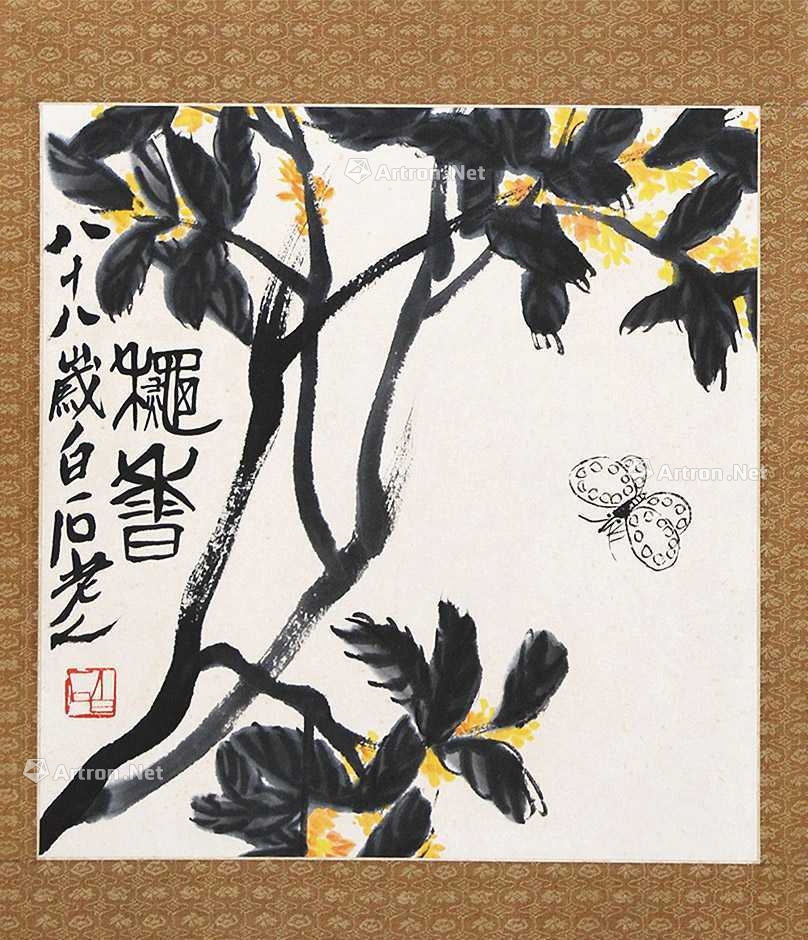 龝香
八十八歲白石老人
Artron.Net
Artron.Net
Artron.Net